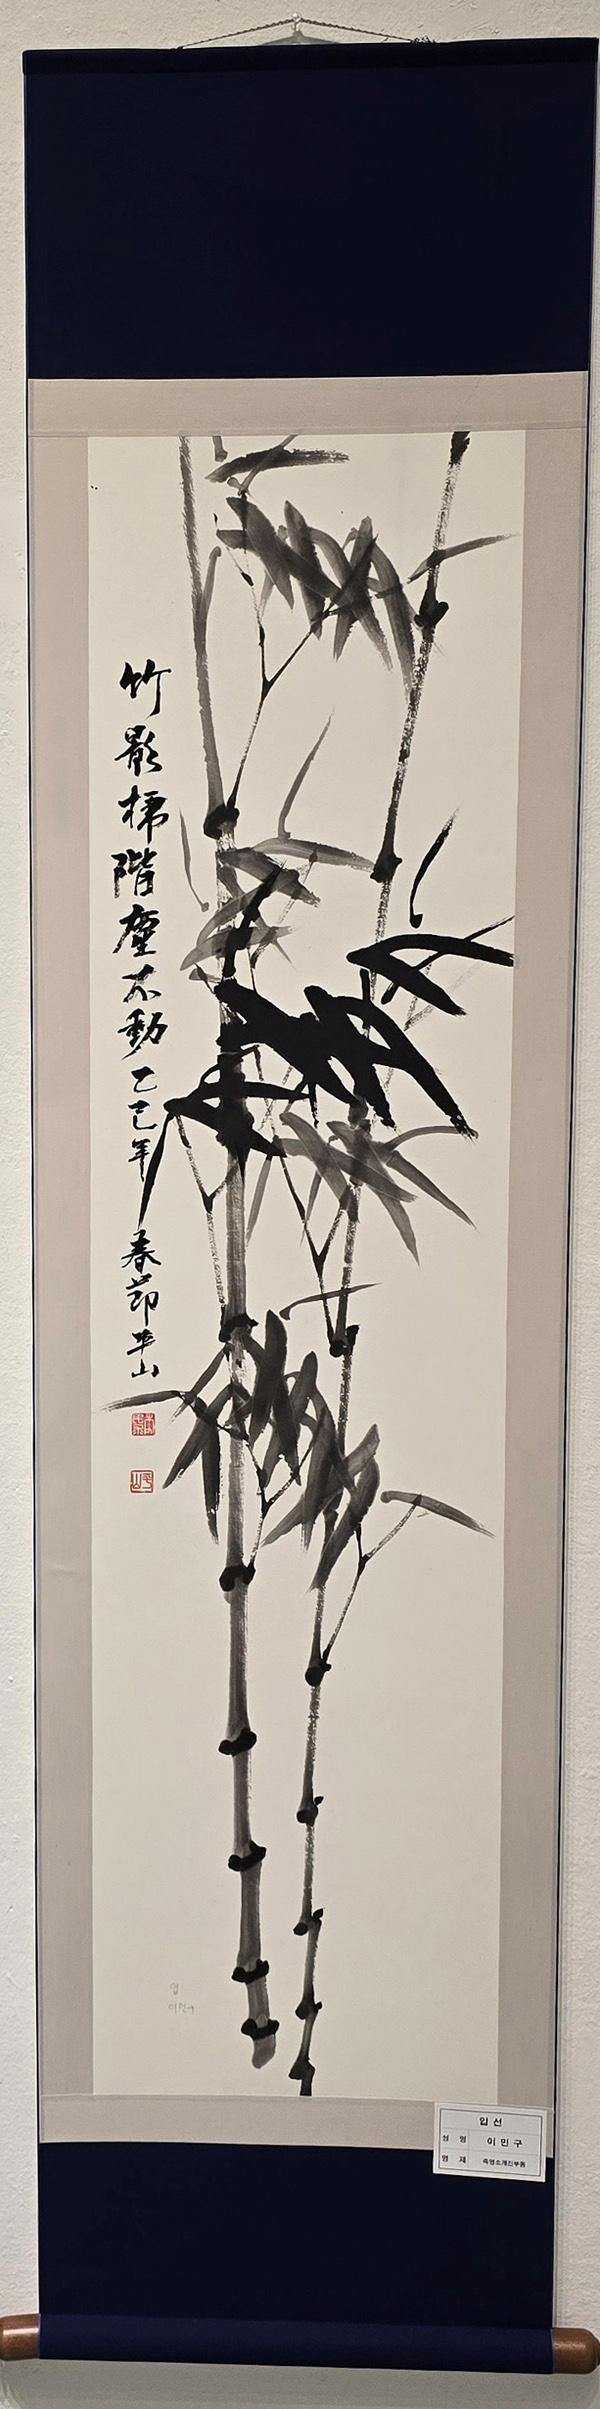 竹影掃階塵不動 乙巳年 春節 平山
입
이민구
입 선
성 명 이 민 구
명 제 죽영소개진부동